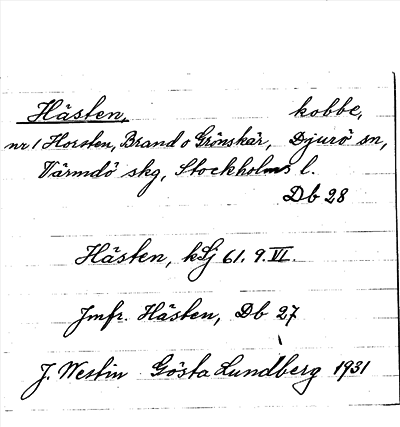 Hästen, kobbe,
nr 1 Horsten, Brand o Grönskär, Djurö sn,
Värmdö skg, Stockholms l.
Db 28
Hästen, kSj 61. 9. VI.
Jmfr. Hästen, Db 27
J. Westin Gösta Lundberg 1931